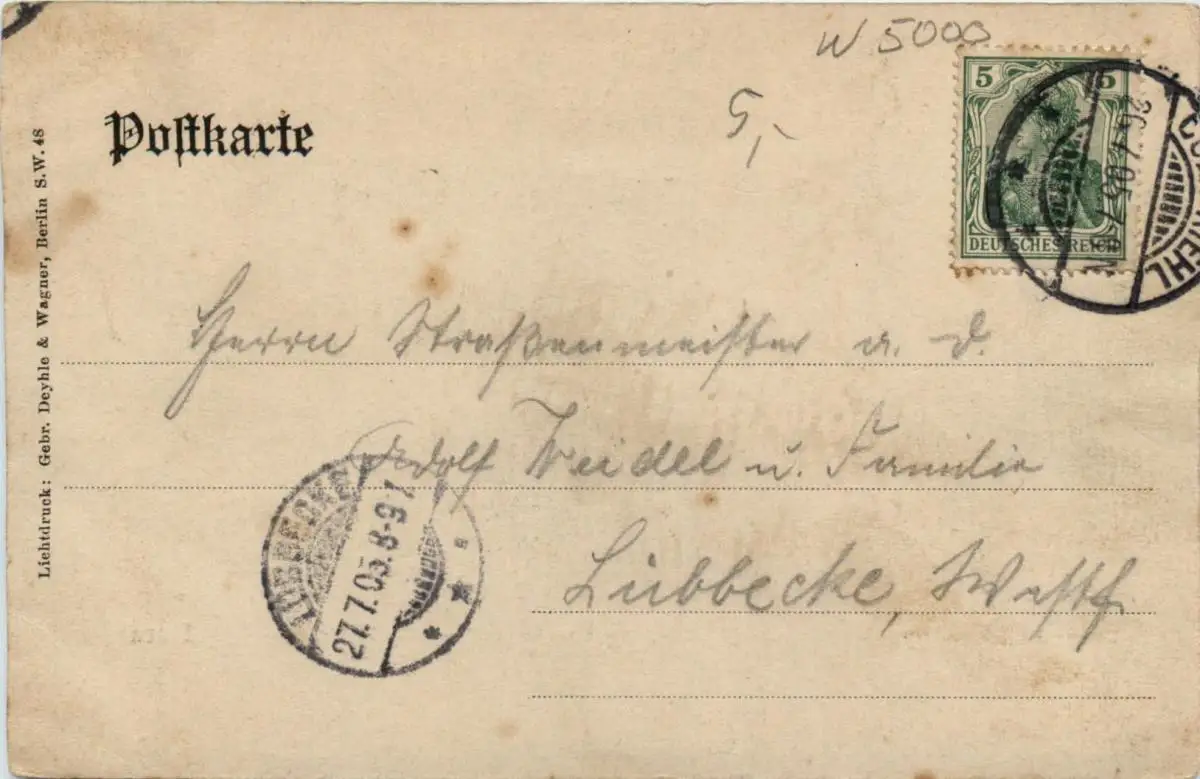 W 5000
5,-
5 5
DEUTSCHES REICH
26.7.05. 7-8N
Postkarte
Lichtdruck: Gebr. Deyhle & Wagner, Berlin S.W. 48
Herrn Straßenmeister a. D.
Adolf Weidel u. Familie
Lübbecke, Westf.
LÜBBECKE
27.7.05. 8-9V.